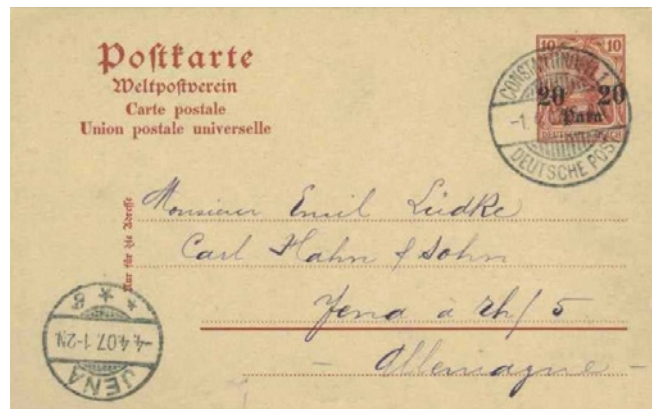 Postkarte
Weltpostverein
Carte postale
Union postale universelle
10 10
20 20
Para
DEUTSCHES REICH
CONSTANTINOPEL 1
-1.
DEUTSCHE POST
Nur für die Adresse
Monsieur Emil Lüdke
Carl Hahn & Sohn
Jena
Allemagne
* * g
-4.4.07.1-2N.
JENA